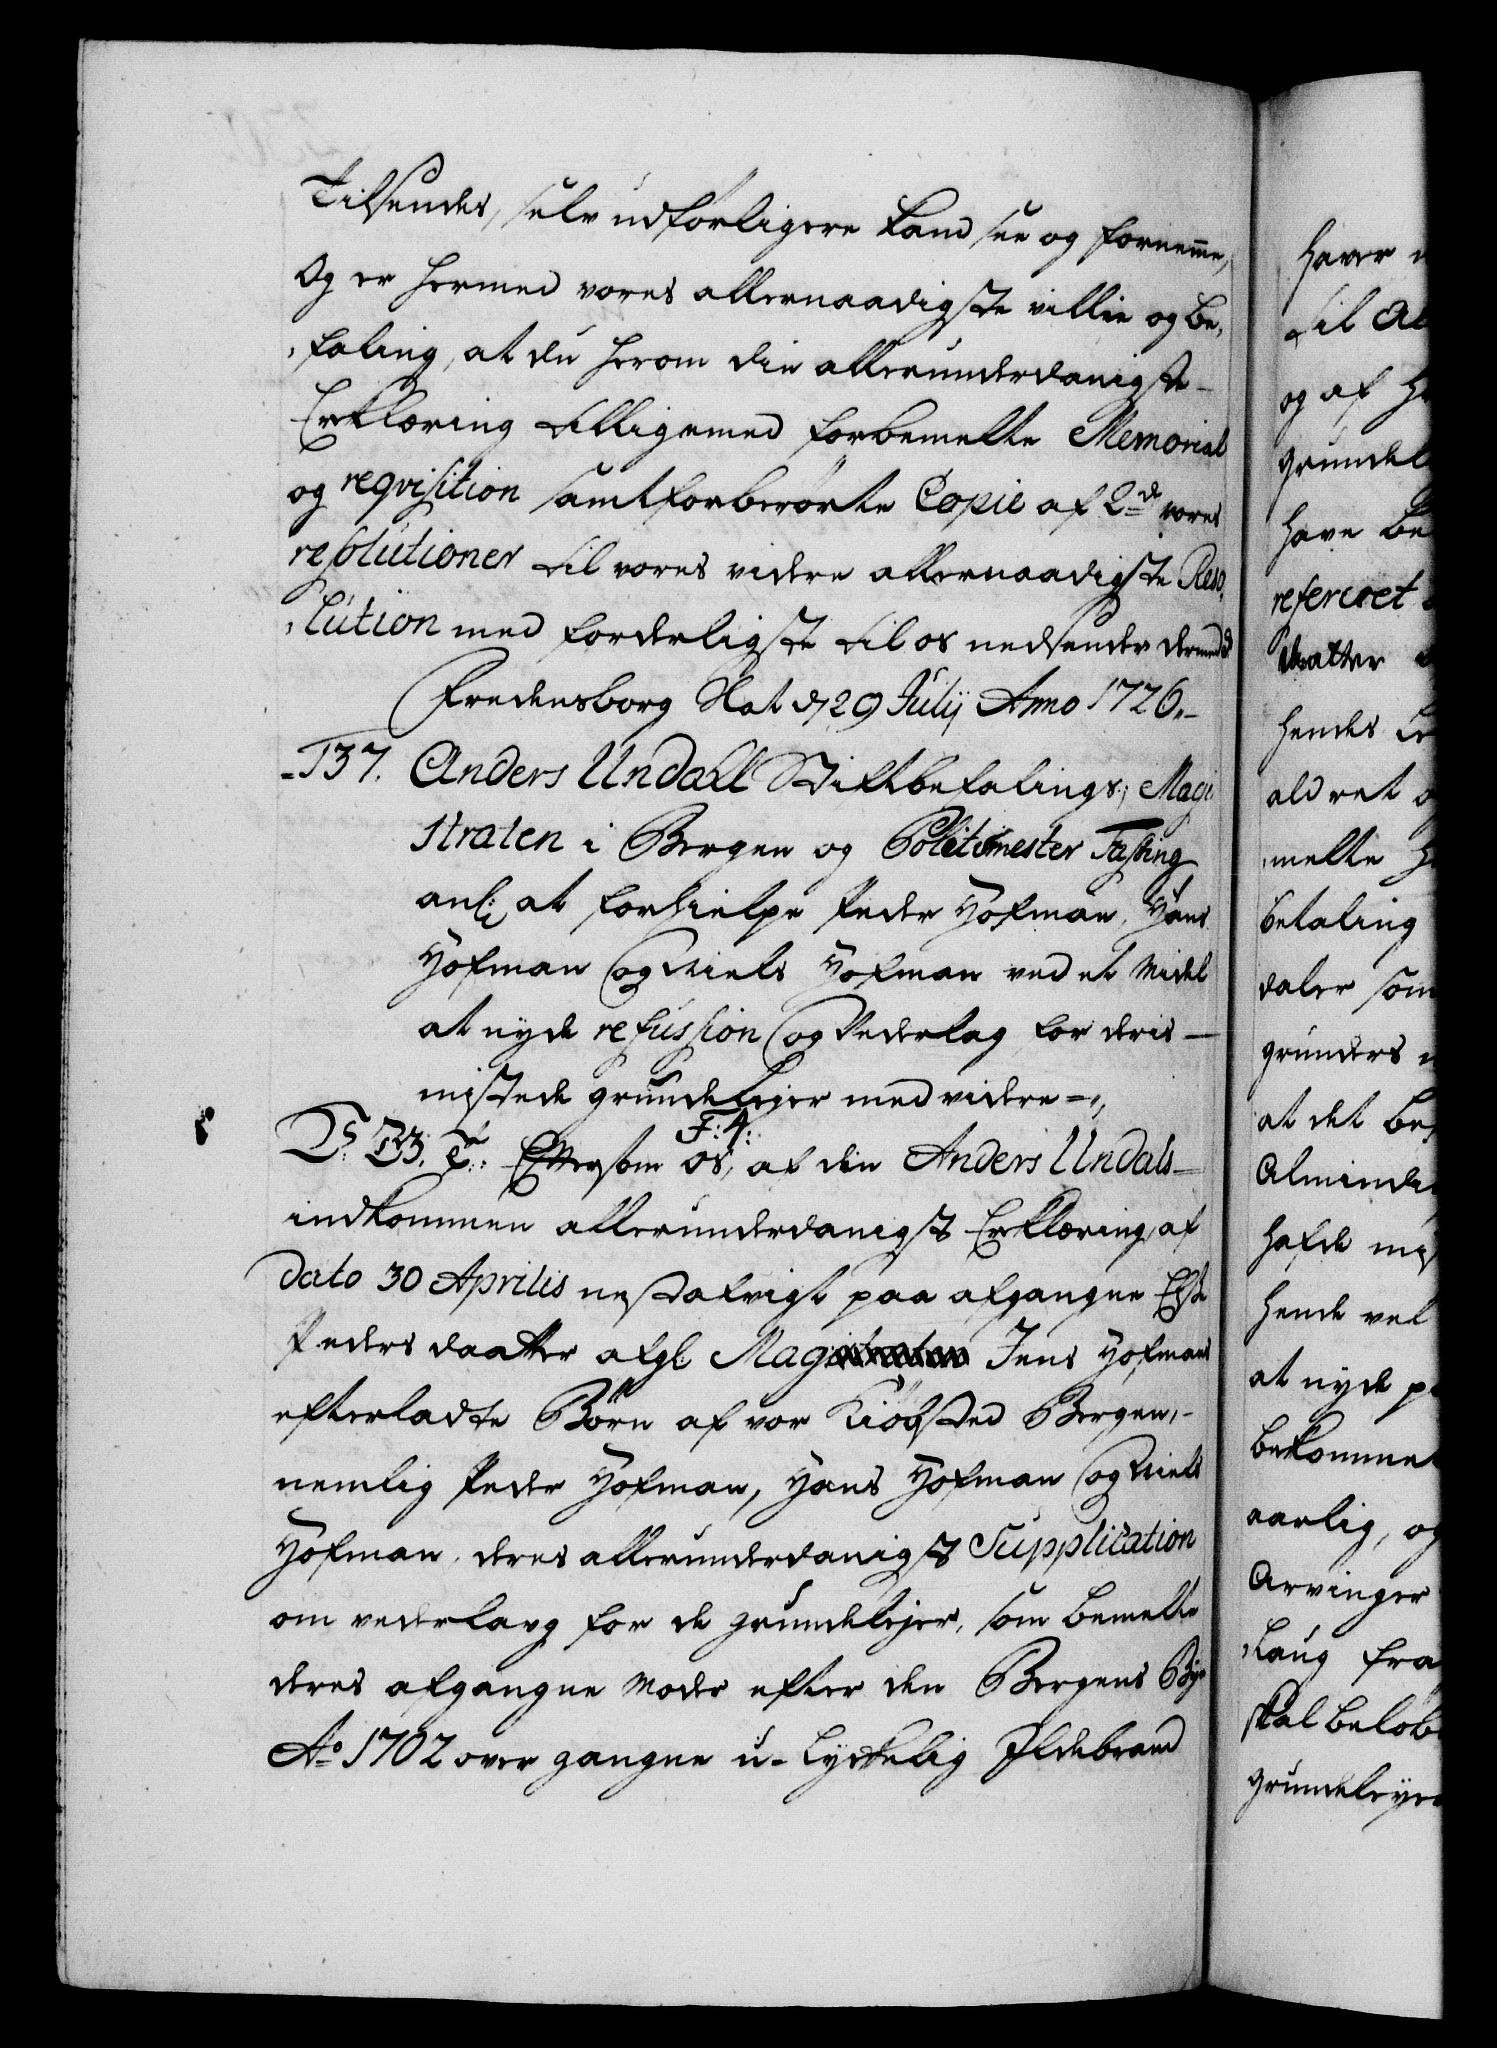 Tilsendes, selv udførligere kand see og fornemme,
Og er hermed vores allernaadigste villie og be„
„faling, at du herom din allerunderdanigste
Erklæring tilligemed forbemelte Memorial
og reqvisition samt forberørte Copie af 2de vores
resolutioner til vores videre allernaadigste Reso„
„lution med forderligste til os nedsender dermed
Fredensborg Slot d 29 Julij Anno 1726.
137. Anders Undall Stiftbefalings, Magi
straten i Bergen og Politimester Fasting
anl: at forhielpe Peder Hofman, Hans
Hofman og Niels Hofman ved et Midel
at nyde refussion og Vederlag for deris
mistede grundelejer med videre
F: 4:
Eftersom os, af din Anders Undals
indkommen allerunderdanigst Erklæring, af
dato 30 Aprilis nestafvigt paa afgangne Else
Peders daatter afgl: Mag Jens Hofmans
efterladte Børn af vor Kiøbsted Bergen,
nemlig Peder Hofman, Hans Hofman og Niels
Hofman, deres allerunderdanigst Supplication
om vederlavg for de grundelejer, som bemelte
deres afgangne Moder efter den Bergens Bye
Ao 1702 over gangne u-lyckelig Ildebrand
haver
til
og af
grundel
have be
refereret
hendes
ald ret
„melte
betaling
daler som
grunders
at det be
Almindi
hafde mis
hende vel
at nyde
bekommet
aarlig, og
Arvinger
„laug fra
skal beløb
grundeleyer